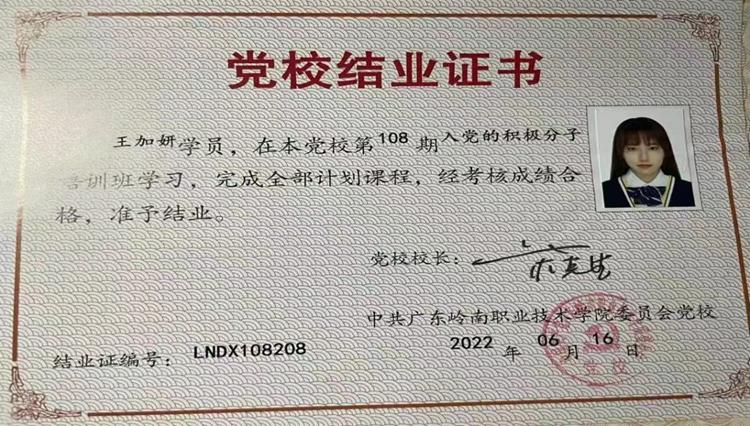 党校结业证书
王加妍学员，在本党校第108期入党的积极分子
培训班学习，完成全部计划课程，经考核成绩合
格，准予结业。
党校校长：
中共广东岭南职业技术学院委员会党校
结业证编号：LNDX108208
2022年06月16日
党校